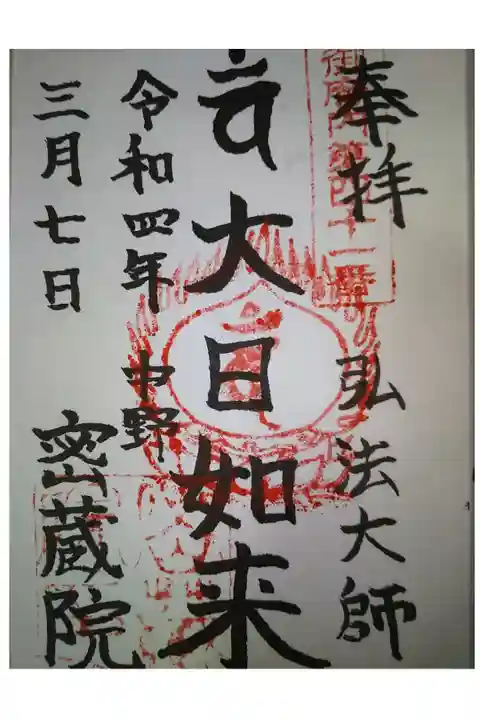 奉拝
弘法大師
御府内第四十一番
大日如来
令和四年
三月七日
中野
密蔵院